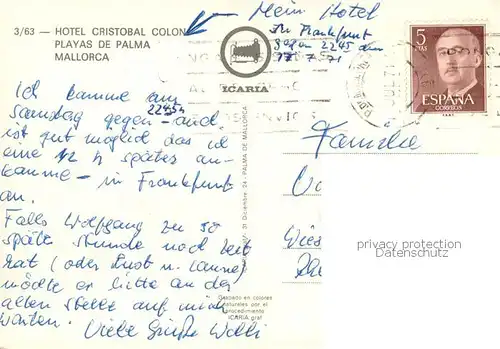 3/63 — HOTEL CRISTOBAL COLON
PLAYAS DE PALMA
MALLORCA
Mein Hotel
In Frankfurt
gegen 2245 den
17.7.71
ICARIA
5
PTAS
ESPAÑA
CORREOS
Ich komme am
Samstag gegen 2245h und
ist gut möglich das ich
eine 1/2 h später an-
komme – in Frankfurt
an.
Falls Wolfgang zu so
später Stunde noch Zeit
hat (oder Lust u. Laune)
möchte er bitte an der
alten Stelle auf mich
warten. Viele Grüße Willi
Familie
31 Diciembre, 24 - PALMA DE MALLORCA
Grabado en colores
naturales por el
procedimiento
ICARIA graf
privacy protection
Datenschutz